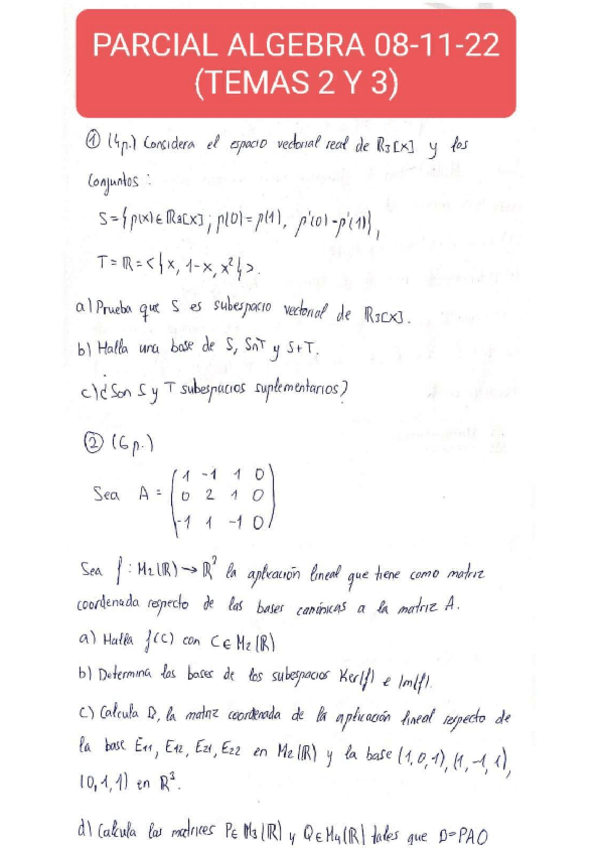 PARCIAL ALGEBRA 08-11-22
(TEMAS 2 Y 3)
① (4p.) Considera el espacio vectorial real de R₃[x] y los
conjuntos:
S={p(x)∈R₃[x]; p(0)=p(1), p'(0)-p'(1)},
T=R=<{x, 1-x, x²}>.
a) Prueba que S es subespacio vectorial de R₃[x].
b) Halla una base de S, S∩T y S+T.
c) ¿Son S y T subespacios suplementarios?
② (6p.)
Sea A = (1 -1 1 0
0 2 1 0
-1 1 -1 0)
Sea f: M₂(R) → R³ la aplicación lineal que tiene como matriz
coordenada respecto de las bases canónicas a la matriz A.
a) Halla f(C) con C∈M₂(R)
b) Determina las bases de los subespacios Ker(f) e Im(f).
c) Calcula D, la matriz coordenada de la aplicación lineal respecto de
la base E₁₁, E₁₂, E₂₁, E₂₂ en M₂(R) y la base (1,0,1), (1,-1,1),
(0,1,1) en R³.
d) Calcula las matrices P∈M₃(R) y Q∈M₄(R) tales que D=PAQ